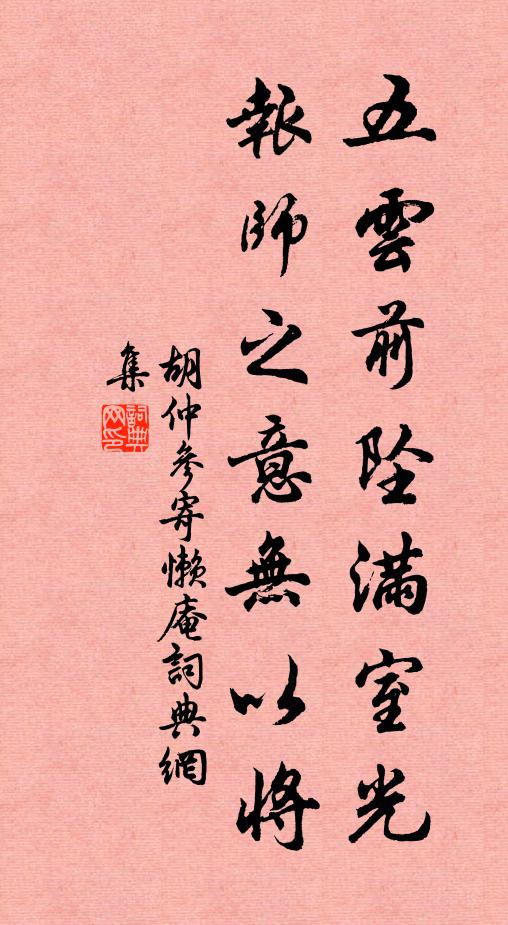 五雲前墜滿室光
報師之意無以將
胡仲參寄懶庵詞典網
集
詞典網印